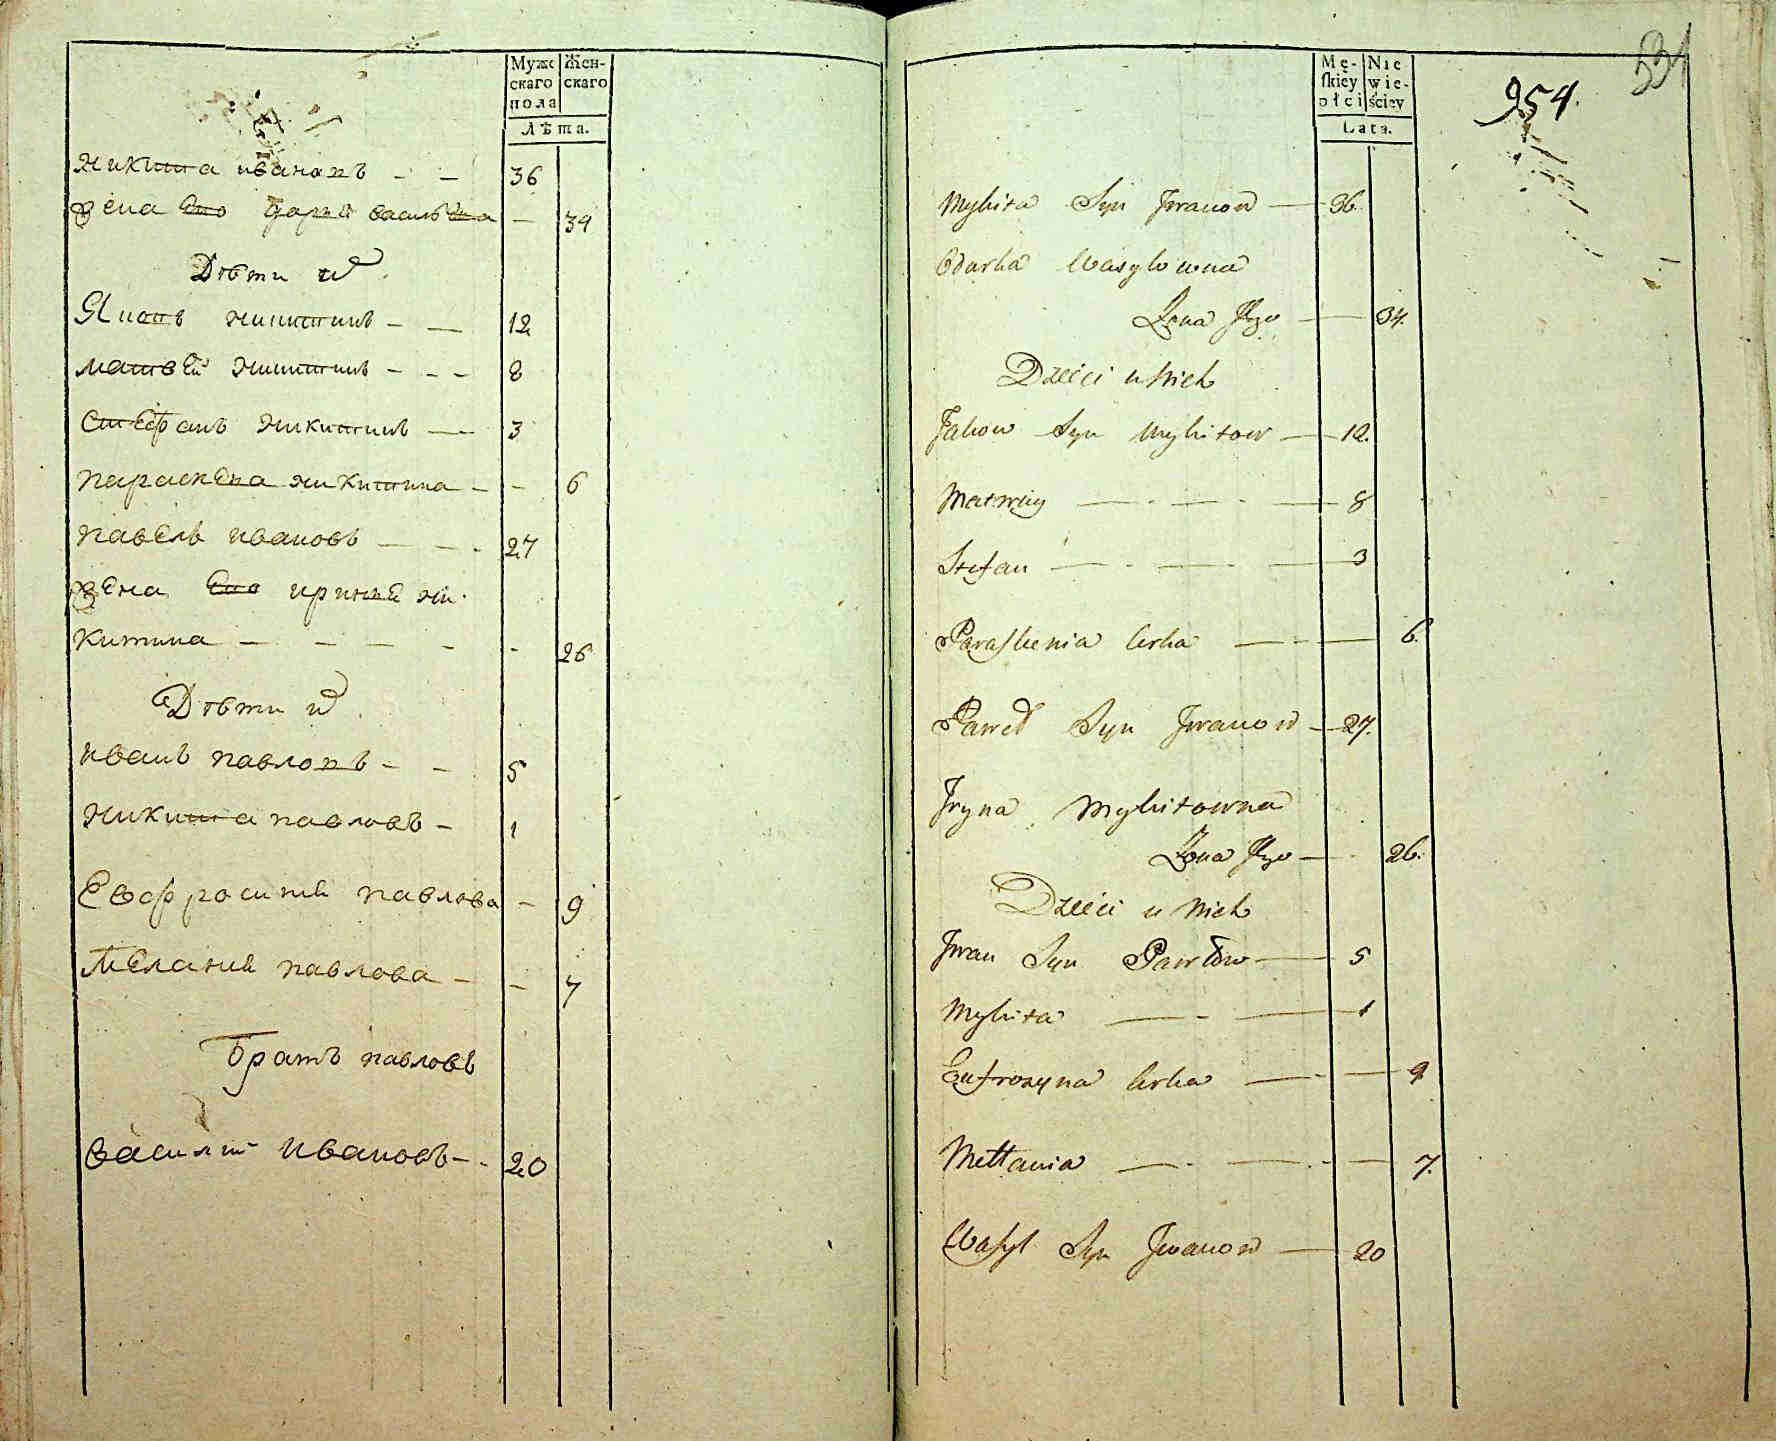 Муже
скаго
пола
Жен-
скаго
Лѣта.
никита ивановъ - - 36
жена его дарья василева - 34
Дѣти их
Яковъ никитинъ - - 12
матвей никитинъ - - - 8
стефанъ никитинъ - 3
параскева никитина - - 6
павелъ ивановъ - - - 27
жена его ирина ни-
китина - - - - - 26
Дѣти их
иванъ павловъ - - 5
никита павловъ - 1
Евфросиния павлова - 9
Мелания павлова - - 7
братъ павловъ
василий ивановъ - - 20
Mę-
skiey
płci
Nie
wie-
ściey
Lata.
954.
531
Mykita Syn Iwanow - 36.
Odarka Wasylowna
Żona Jego - 34.
Dzieci u Nich
Jakow Syn Mykitow - 12.
Matwiey - - - 8
Stefan - - - 3
Paraskewia Crka - - 6.
Paweł Syn Iwanow - 27.
Iryna Mykitowna
Żona Jego - 26.
Dzieci u Nich
Iwan Syn Pawłow - 5
Mykita - - - 1
Eufrozyna Crka - - 9
Mełłania - - - 7.
Wasyl Syn Iwanow - 20